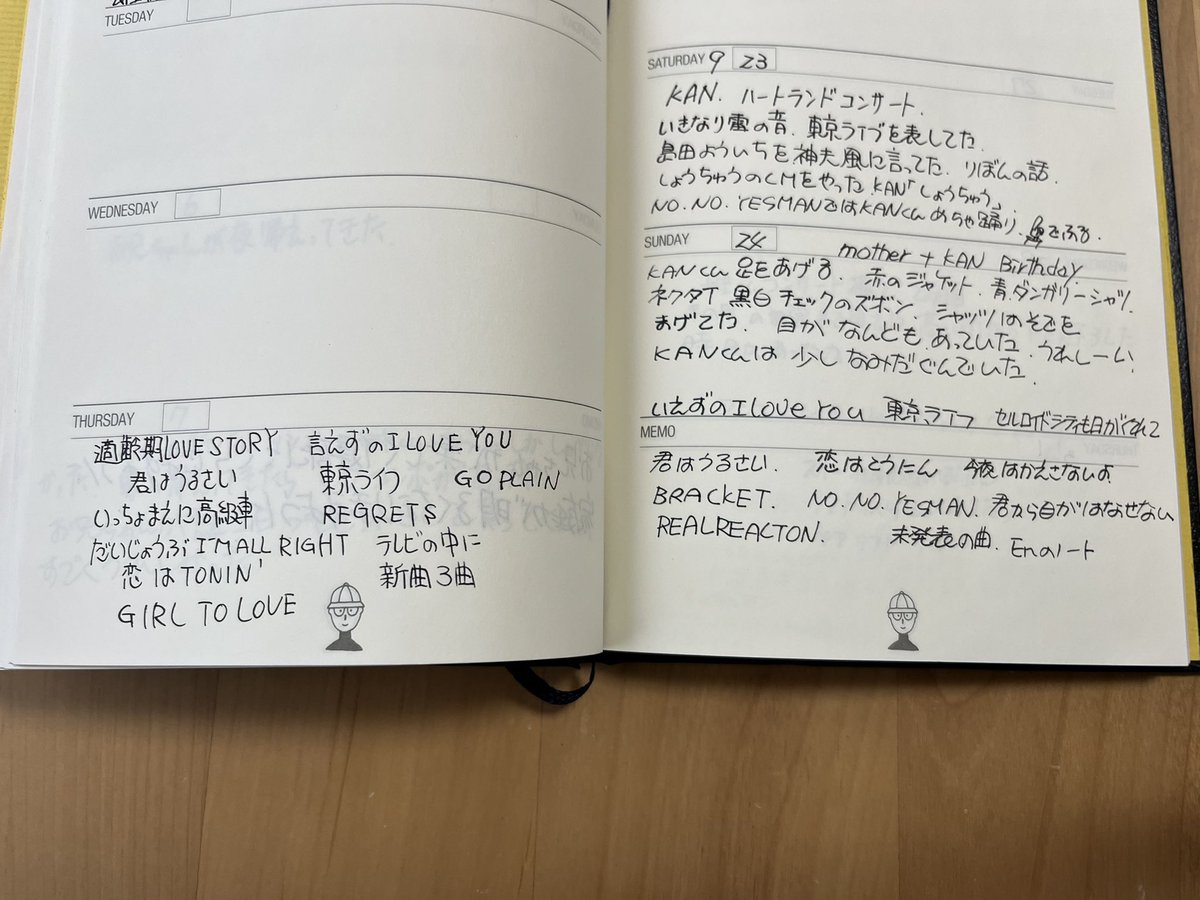 TUESDAY
WEDNESDAY
THURSDAY
適齢期LOVE STORY 言えずのI LOVE YOU
君はうるさい 東京ライフ GO PLAIN
いっちょまえに高級車 REGRETS
だいじょうぶI'M ALL RIGHT テレビの中に
恋はTONIN' 新曲3曲
GIRL TO LOVE
SATURDAY 9 23
KAN. ハートランドコンサート.
いきなり雪の音. 東京ライブを表してた.
島田よういちを神父風に言ってた. りぼんの話.
しょうちゅうのCMをやった KAN「しょうちゅう」
NO. NO. YESMANではKANくんめちゃ踊り、をふる.
SUNDAY 24 mother + KAN Birthday.
KANくん足をあげる. 赤のジャケット. 青.ダンガリーシャツ.
ネクタイ 黒白チェックのズボン. シャッツはそでを
まげてた. 目がなんども.あっていた. うれしーい
KANくんは少しなみだぐんでいた.
いえずのI love You 東京ライフ セルロイドシティも日がくれて
MEMO
君はうるさい. 恋はとうにん 今夜はかえさないよ
BRACKET. NO. NO. YESMAN. 君から目がはなせない
REALREACTON. 未発表の曲. Enのノート